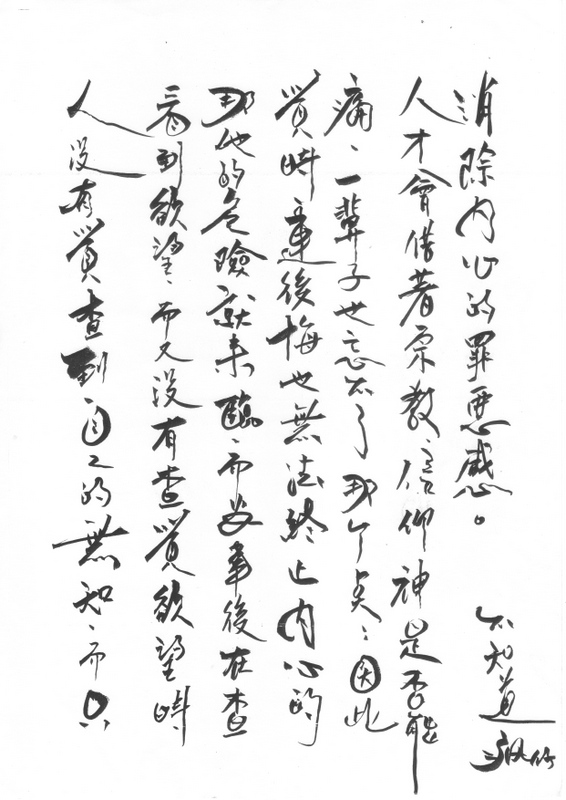 人沒有覺查到自己的無知、而只
看到欲望、而又沒有查覺欲望時、
那他的危險就來臨、而事後在查
覺時連後悔也無法終止內心的
痛、一輩子也忘不了那个；因此
人才會借著宗教、信仰神是否能
消除內心的罪惡感。
不知道